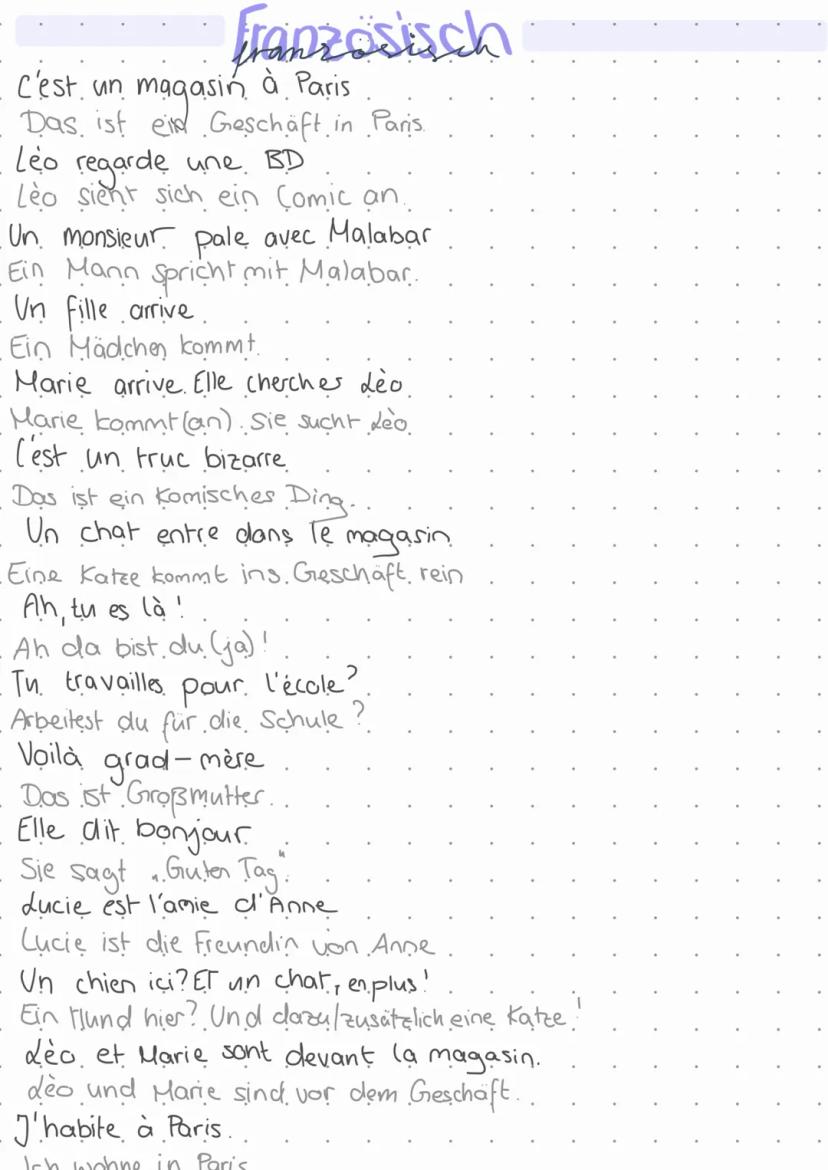 Französisch
französisch
C'est un magasin à Paris
Das ist ein Geschäft in Paris.
Lèo regarde une BD
Lèo sieht sich ein Comic an.
Un monsieur pale avec Malabar
Ein Mann spricht mit Malabar.
Un fille arrive
Ein Mädchen kommt.
Marie arrive. Elle cherches Lèo.
Marie kommt (an). Sie sucht Lèo.
C'est un truc bizarre
Das ist ein komisches Ding.
Un chat entre dans le magasin
Eine Katze kommt ins Geschäft rein
Ah, tu es là !
Ah da bist du (ja)!
Tu travailles pour l'école?
Arbeitest du für die Schule ?
Voilà grad-mère
Das ist Großmutter.
Elle dit bonjour
Sie sagt „Guten Tag".
Lucie est l'amie d'Anne
Lucie ist die Freundin von Anne
Un chien ici? ET un chat, en plus!
Ein Hund hier? Und dazu/zusätzlich eine Katze!
Lèo et Marie sont devant la magasin.
Lèo und Marie sind vor dem Geschäft.
J'habite à Paris.
Ich wohne in Paris